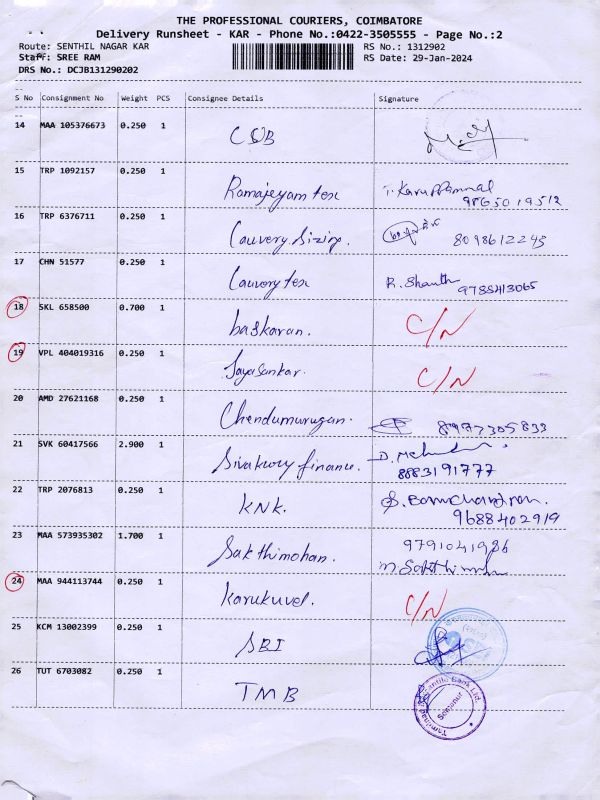 THE PROFESSIONAL COURIERS, COIMBATORE
Delivery Runsheet - KAR - Phone No.:0422-3505555 - Page No.:2
Route: SENTHIL NAGAR KAR RS No.: 1312902
Staff: SREE RAM RS Date: 29-Jan-2024
DRS No.: DCJB131290202
S No Consignment No Weight PCS Consignee Details Signature
14 MAA 105376673 0.250 1 CUB
15 TRP 1092157 0.250 1 Ramajeyam tex T. Karuppammal
9865019512
16 TRP 6376711 0.250 1 Cauvery Sizing. 8098612243
17 CHN 51577 0.250 1 Cauvery tex R. Shanthi 9788413065
18 SKL 658500 0.700 1 baskaran. C/N
19 VPL 404019316 0.250 1 Jayasankar. C/N
20 AMD 27621168 0.250 1 Chendumurugan. 8977305833
21 SVK 60417566 2.900 1 finance. D.
8883191777
22 TRP 2076813 0.250 1 KNK.
9688402919
23 MAA 573935302 1.700 1 Sakthimohan. 9791041936
24 MAA 944113744 0.250 1 Karukuvel. C/N
25 KCM 13002399 0.250 1 SBI
26 TUT 6703082 0.250 1 TMB
Tamilnad Mercantile Bank Ltd.